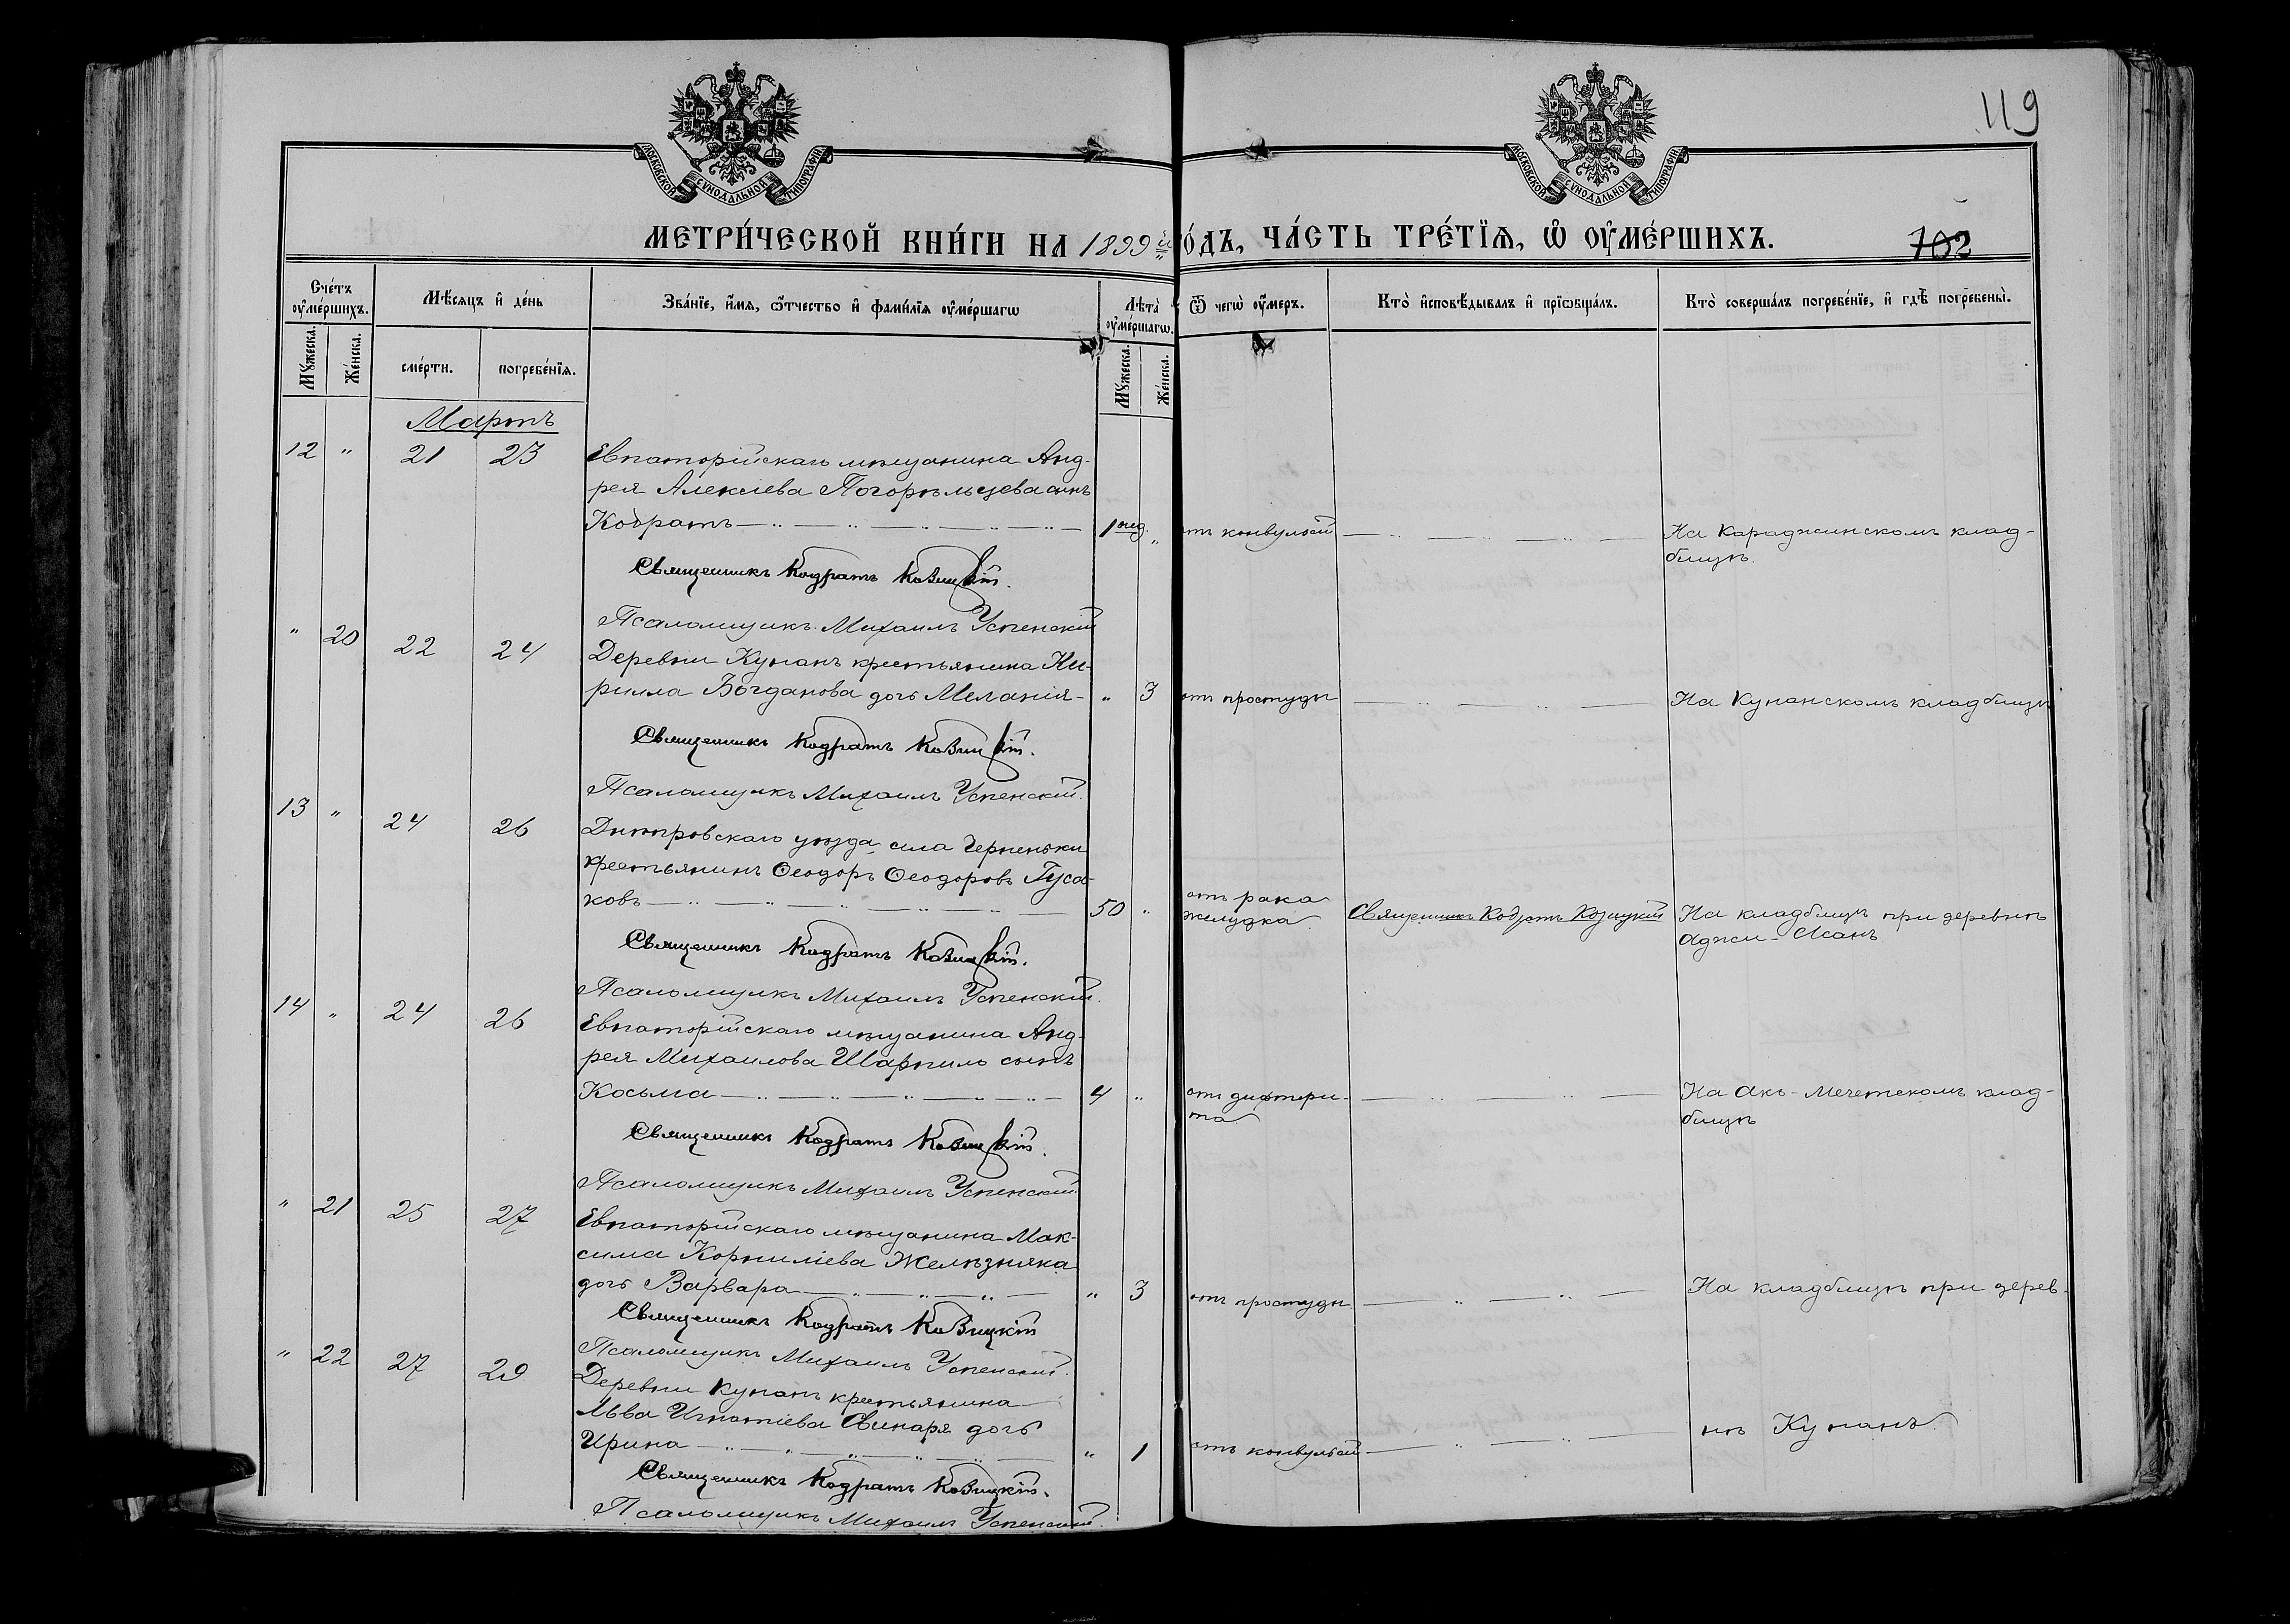 119
МОСКОВСКОЙ СУНОДАЛЬНОЙ ТИПОГРАФІИ
МОСКОВСКОЙ СУНОДАЛЬНОЙ ТИПОГРАФІИ
МЕТРИ́ЧЕСКОЙ КНИ́ГИ НА 1899 й го́дъ, ЧА́СТЬ ТРЕ́ТІѦ, Ѡ҆ ОУ҆МЕ́РШИХЪ.
702
Сче́тъ оу҆ме́ршихъ.
Мѣ́сѧцъ и҆ де́нь
Зва́нїе, и҆́мѧ, ѻ҆́тчество и҆ фами́лїѧ оу҆ме́ршагѡ
Лѣ́та оу҆ме́ршагѡ.
Ѿ чегѡ̀ оу҆́меръ.
Кто̀ и҆сповѣ́дывалъ и҆ прїѡбща́лъ.
Кто̀ соверша́лъ погребе́нїе, и҆ гдѣ̀ погребены̀.
Мꙋ́жеска. Же́нска.
сме́рти. погребе́нїѧ.
Мꙋ́жеска. Же́нска.
Мартъ
12 " 21 23 Евпаторійскаго мѣщанина Анд-
рея Алексіева Погорѣльцева сынъ
Кодратъ 1 нед. " отъ конвульсій На Караджинскомъ клад-
бищѣ.
Священникъ Кодратъ Козицкій.
Псаломщикъ Михаилъ Успенскій
" 20 22 24 Деревни Кунанъ крестьянина Ки-
рилла Богданова дочь Меланія " 3 отъ простуды На Кунанскомъ кладбищѣ
Священникъ Кодратъ Козицкій.
Псаломщикъ Михаилъ Успенскій.
13 " 24 26 Днѣпровскаго уѣзда села Черненьки
крестьянинъ Ѳеодоръ Ѳеодоровъ Гуса-
ковъ 50 " отъ рака желудка. Священникъ Кодратъ Козицкій На кладбищѣ при деревнѣ
Аджи-Асанъ
Священникъ Кодратъ Козицкій.
Псаломщикъ Михаилъ Успенскій.
14 " 24 26 Евпаторійскаго мѣщанина Анд-
рея Михаилова Шарпило сынъ
Косьма 4 " отъ дифтери-
та На Акъ-Мечетскомъ клад-
бищѣ
Священникъ Кодратъ Козицкій.
Псаломщикъ Михаилъ Успенскій.
" 21 25 27 Евпаторійскаго мѣщанина Мак-
сима Корниліева Желѣзняка
дочь Варвара " 3 отъ простуды На кладбищѣ при дерев-
Священникъ Кодратъ Козицкій
Псаломщикъ Михаилъ Успенскій.
" 22 27 29 Деревни Кунанъ крестьянина
Льва Игнатіева Свинаря дочь
Ирина " 1 отъ конвульсій нѣ Кунанъ
Священникъ Кодратъ Козицкій.
Псаломщикъ Михаилъ Успенскій.